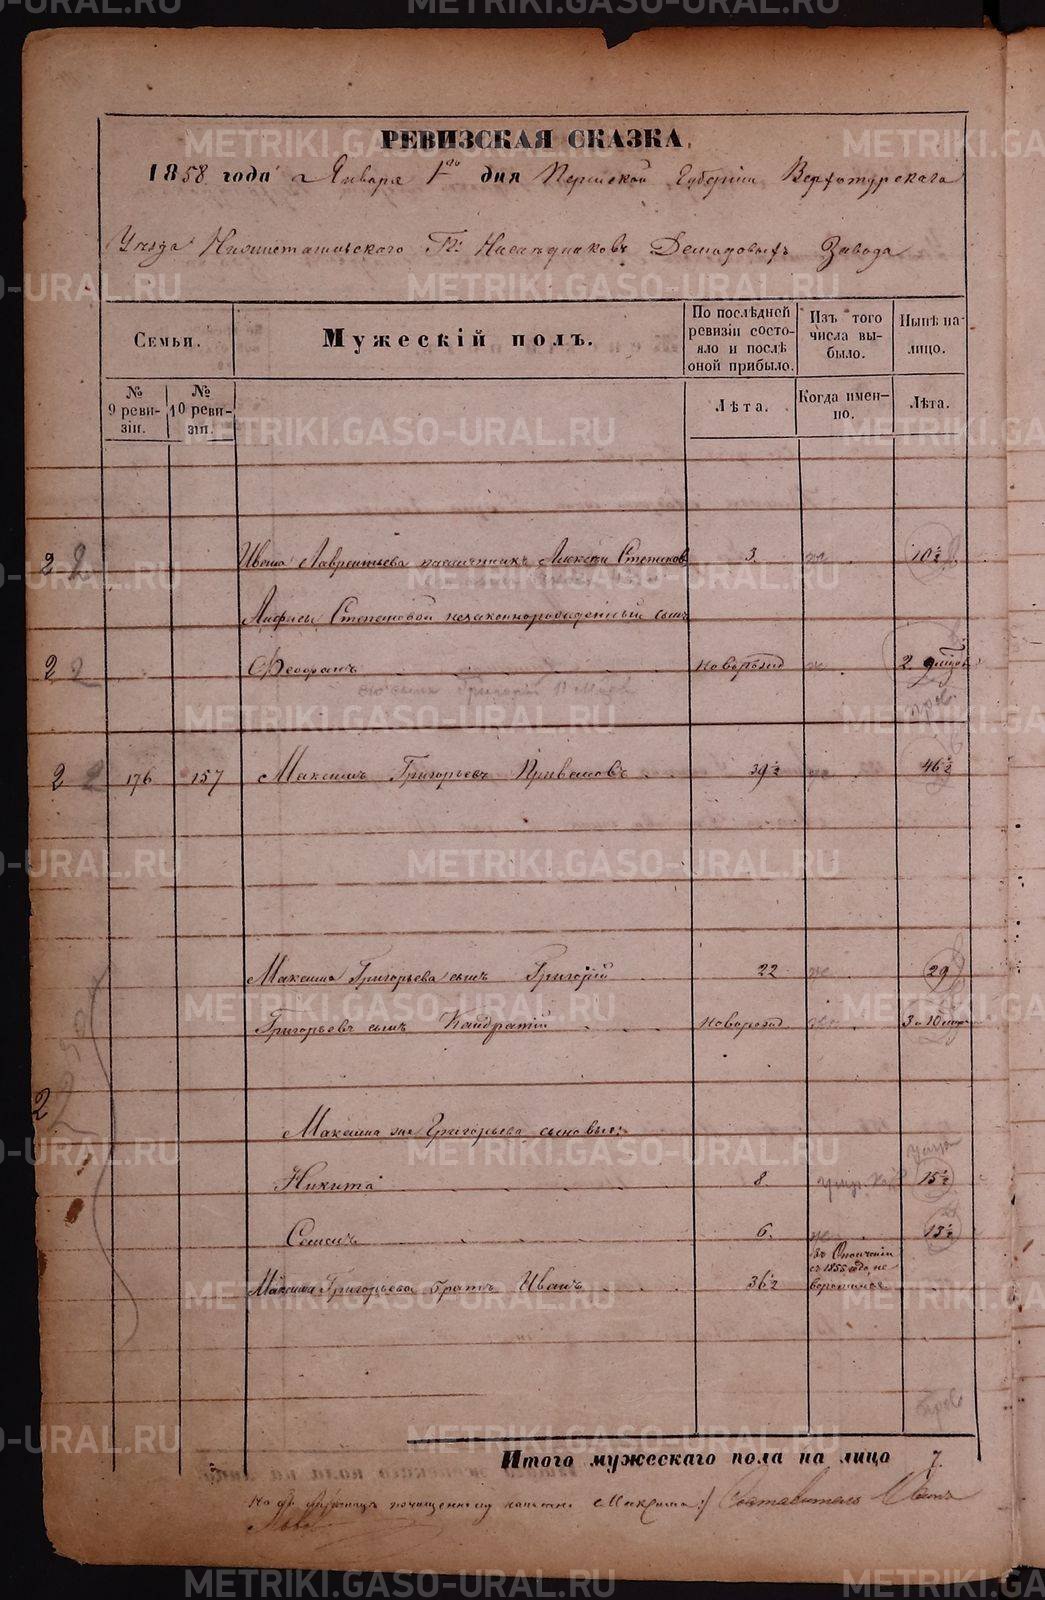 РЕВИЗСКАЯ СКАЗКА,
1858 года Января 1го дня Пермской Губернiи Верхотурскаго
Уезда Нижнетагильскаго Гг. Наследниковъ Демидовыхъ Завода
Семьи.
Мужескiй полъ.
По послѣдней ревизiи состояло и послѣ оной прибыло.
Изъ того числа выбыло.
Нынѣ на-лицо.
№ 9 ревизiи.
№ 10 ревизiи.
Лѣта.
Когда именно.
Лѣта.
2 2 Ивана Лаврентьева пасынникъ Алексей 3 10½
Анфисы Степановой незаконнорожденный сынъ
2 2 Феофанъ новорожд 2
сынъ Григорiй
2 2 176 157 Максимъ Григорьевъ Приваловъ 39½ 46½
Максима Григорьева сынъ Григорiй 22 29
Григорьевъ сынъ Кондратiй новорожд 3 10
2
Максима Григорьева сыновья:
Никита 8 15½
Семенъ 6 13½
Максима Григорьева братъ Иванъ 36½ въ Ополченiи съ 1855 года не воротился
Итого мужескаго пола на лицо 7.
по почищенному написано Максима:/ Составитель Иванъ